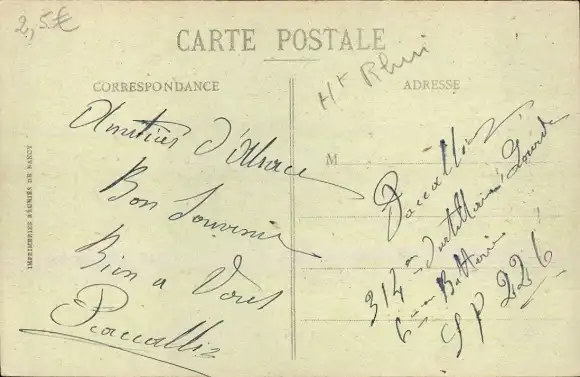 2,5€
CARTE POSTALE
Ht Rhin
CORRESPONDANCE
ADRESSE
Amitiés d'Alsace
Bon Souvenir
Bien a Vous
M
314e d'artillerie Lourde
6me Batterie
SP 226
IMPRIMERIES RÉUNIES DE NANCY